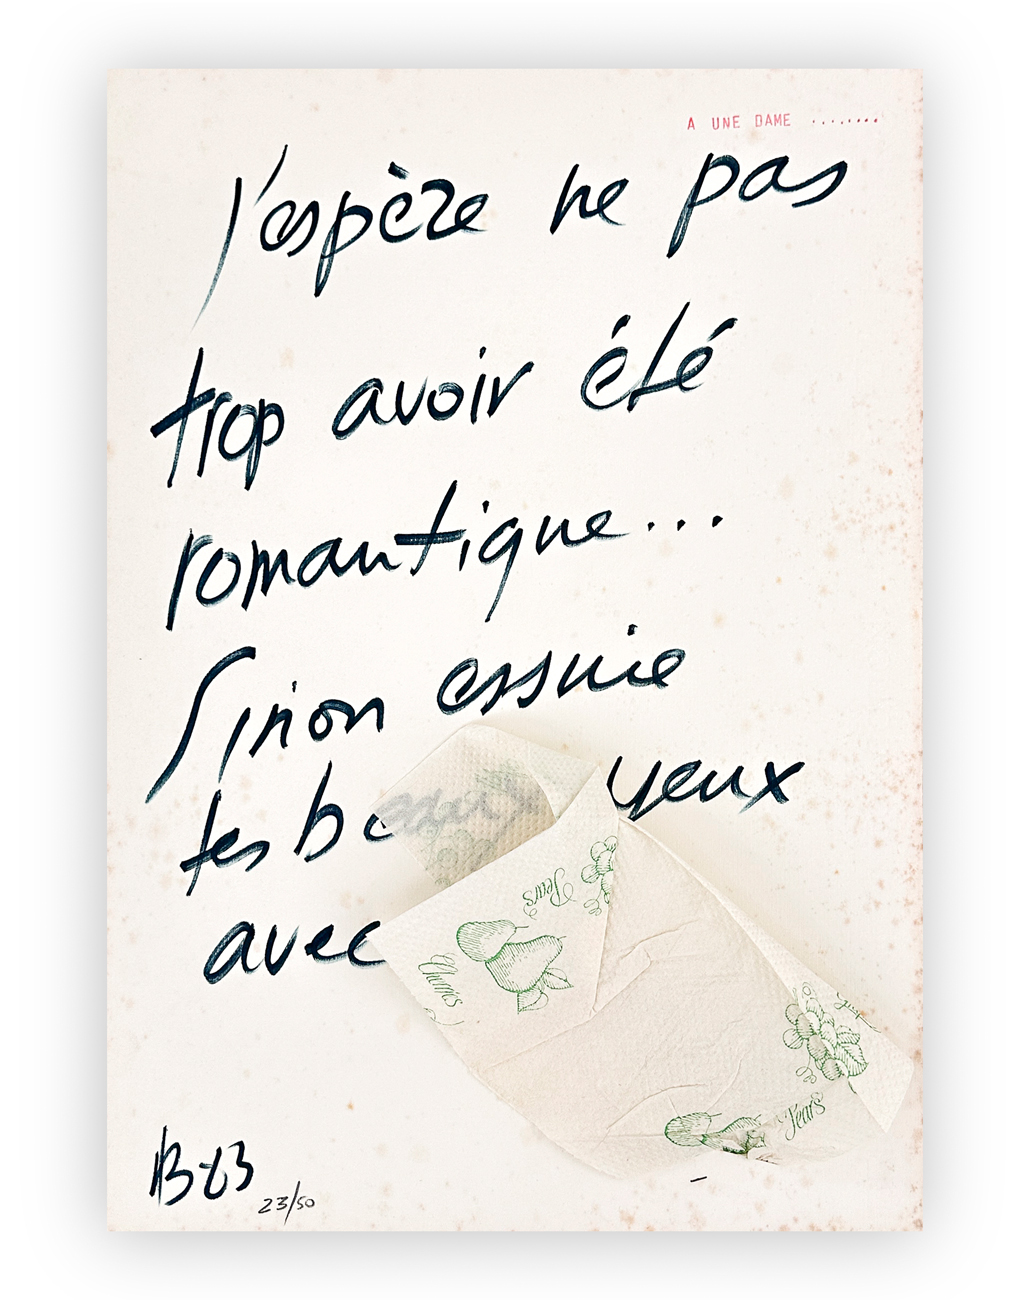 A UNE DAME ........
j'espère ne pas
trop avoir été
romantique...
Sinon essuie
tes yeux
avec
Pears
Cherries
Pears
B 83
23/50